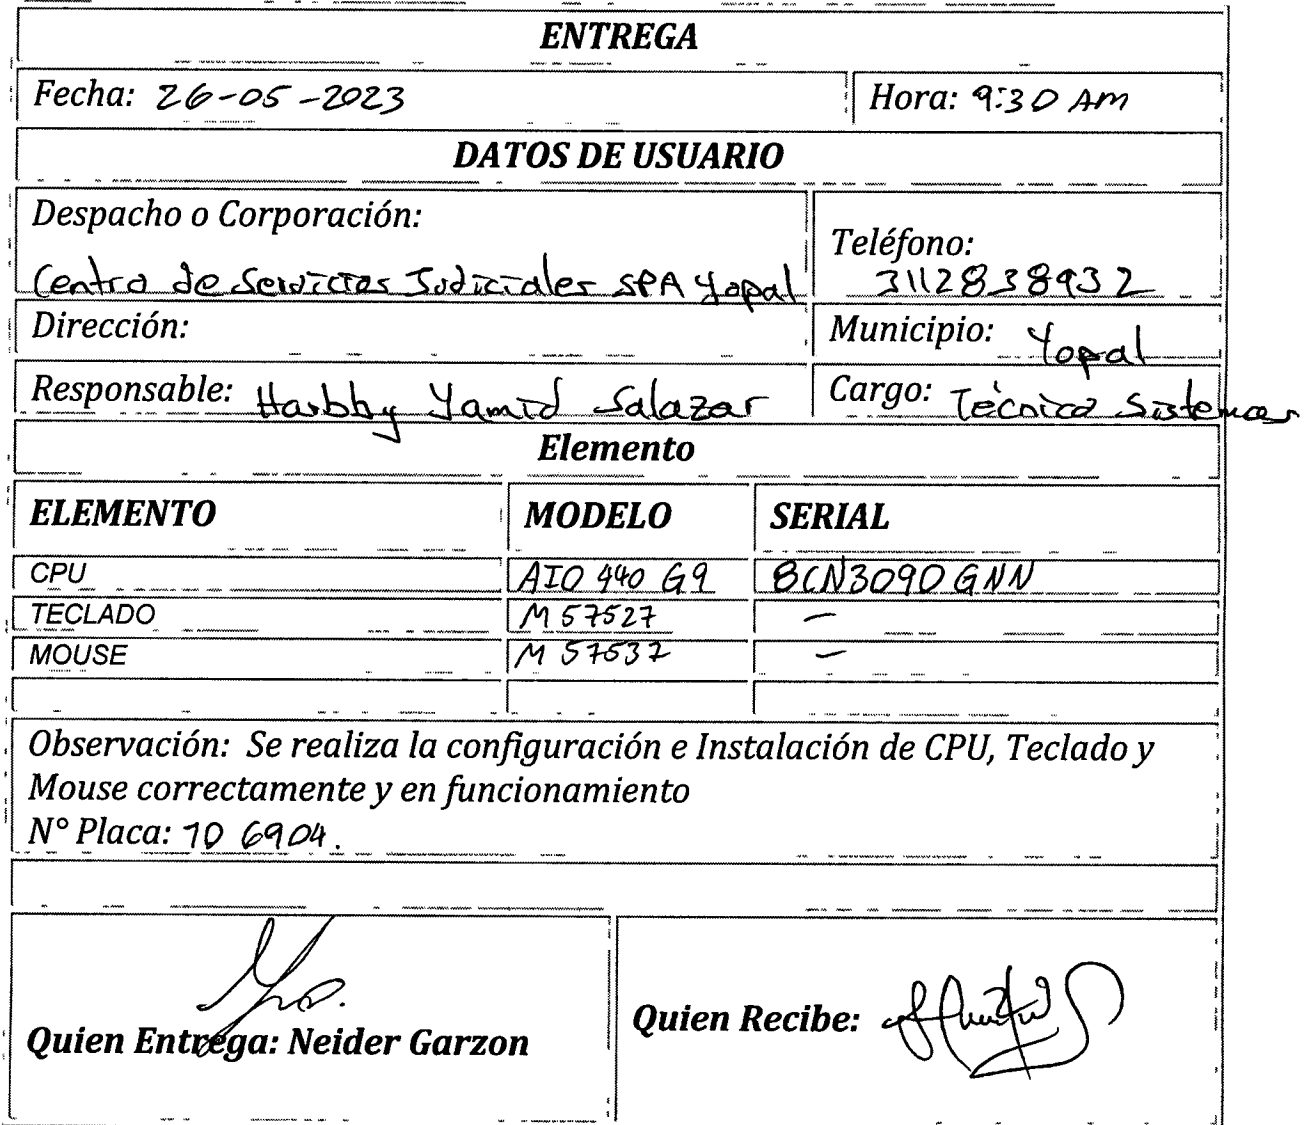 ENTREGA
Fecha: 26-05-2023 Hora: 9:30 AM
DATOS DE USUARIO
Despacho o Corporación:
Centro de Servicios Judiciales SPA Yopal
Teléfono:
3112838932
Dirección:
Municipio: Yopal
Responsable: Harbby Yamid Salazar
Cargo: Técnico Sistemas
Elemento
ELEMENTO MODELO SERIAL
CPU AIO 440 G9 8CN3090GNN
TECLADO M57527 —
MOUSE M57537 —
Observación: Se realiza la configuración e Instalación de CPU, Teclado y
Mouse correctamente y en funcionamiento
N° Placa: 706904.
Quien Entrega: Neider Garzon
Quien Recibe: